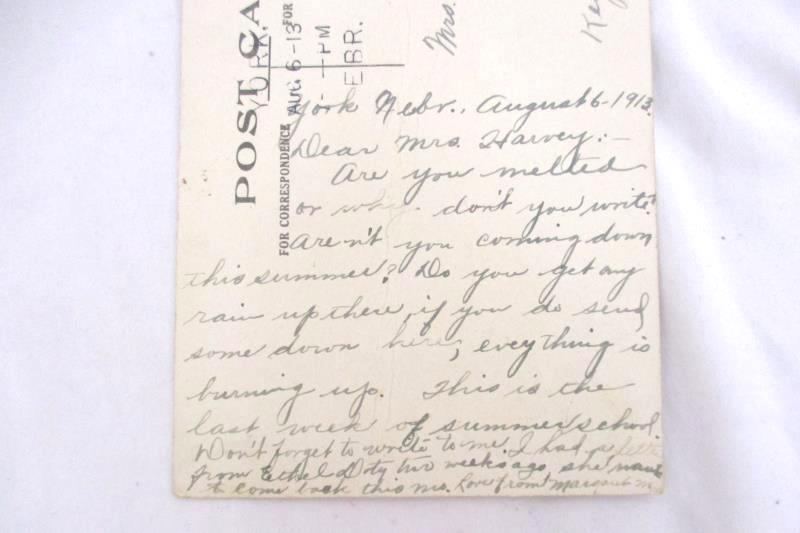 POST CA
FOR CORRESPONDENCE
FOR
YORK.
AUG 6-13
-PM
EBR.
Mrs.
York Nebr., August 6-1913.
Dear Mrs. Harvey:-
Are you melted
or why don't you write?
Aren't you coming down
this summer? Do you get any
rain up there, if you do send
some down here, eveything is
burning up. This is the
last week of summer school.
Don't forget to write to me. I had a letter
from Ethel Doty two weeks ago, she
to come back this mo. Love from Margaret M